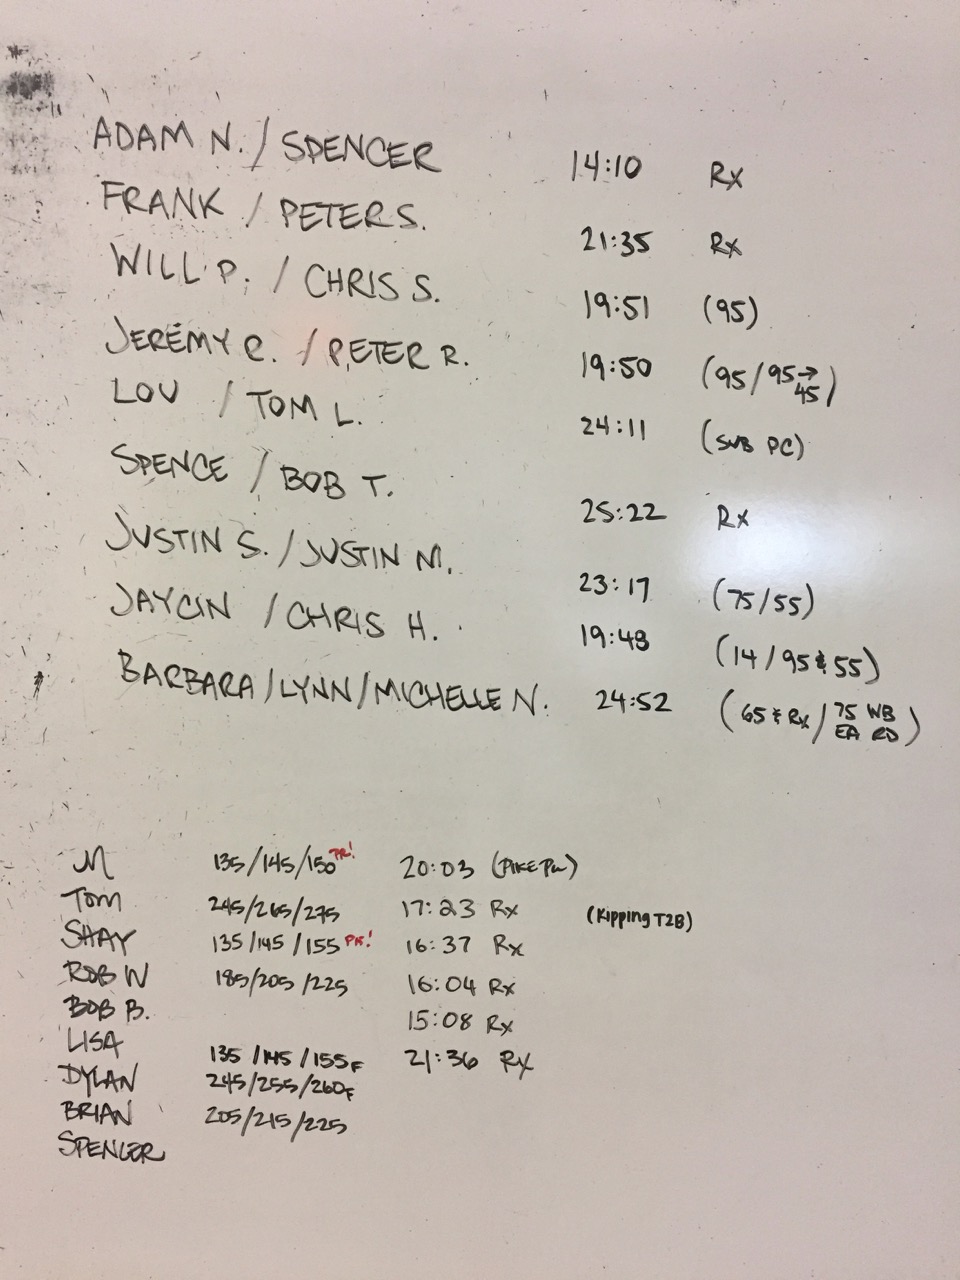 ADAM N. / SPENCER 14:10 Rx
FRANK / PETER S. 21:35 Rx
WILL P. / CHRIS S. 19:51 (95)
JEREMY R. / PETER R. 19:50 (95/95→45)
LOU / TOM L. 24:11 (SUB PC)
SPENCE / BOB T. 25:22 Rx
JUSTIN S. / JUSTIN M. 23:17 (75/55)
JAYCIN / CHRIS H. 19:48 (14/95 & 55)
BARBARA/LYNN/MICHELLE N. 24:52 (65 & Rx/75 WB EA RD)
M 135/145/150 PR! 20:03 (PIKE PU)
TOM 245/265/275 17:23 Rx (Kipping T2B)
SHAY 135/145/155 PR! 16:37 Rx
ROB W 185/205/225 16:04 Rx
BOB B. 15:08 Rx
LISA 135/145/155F 21:36 Rx
DYLAN 245/255/260F
BRIAN 205/215/225
SPENCER